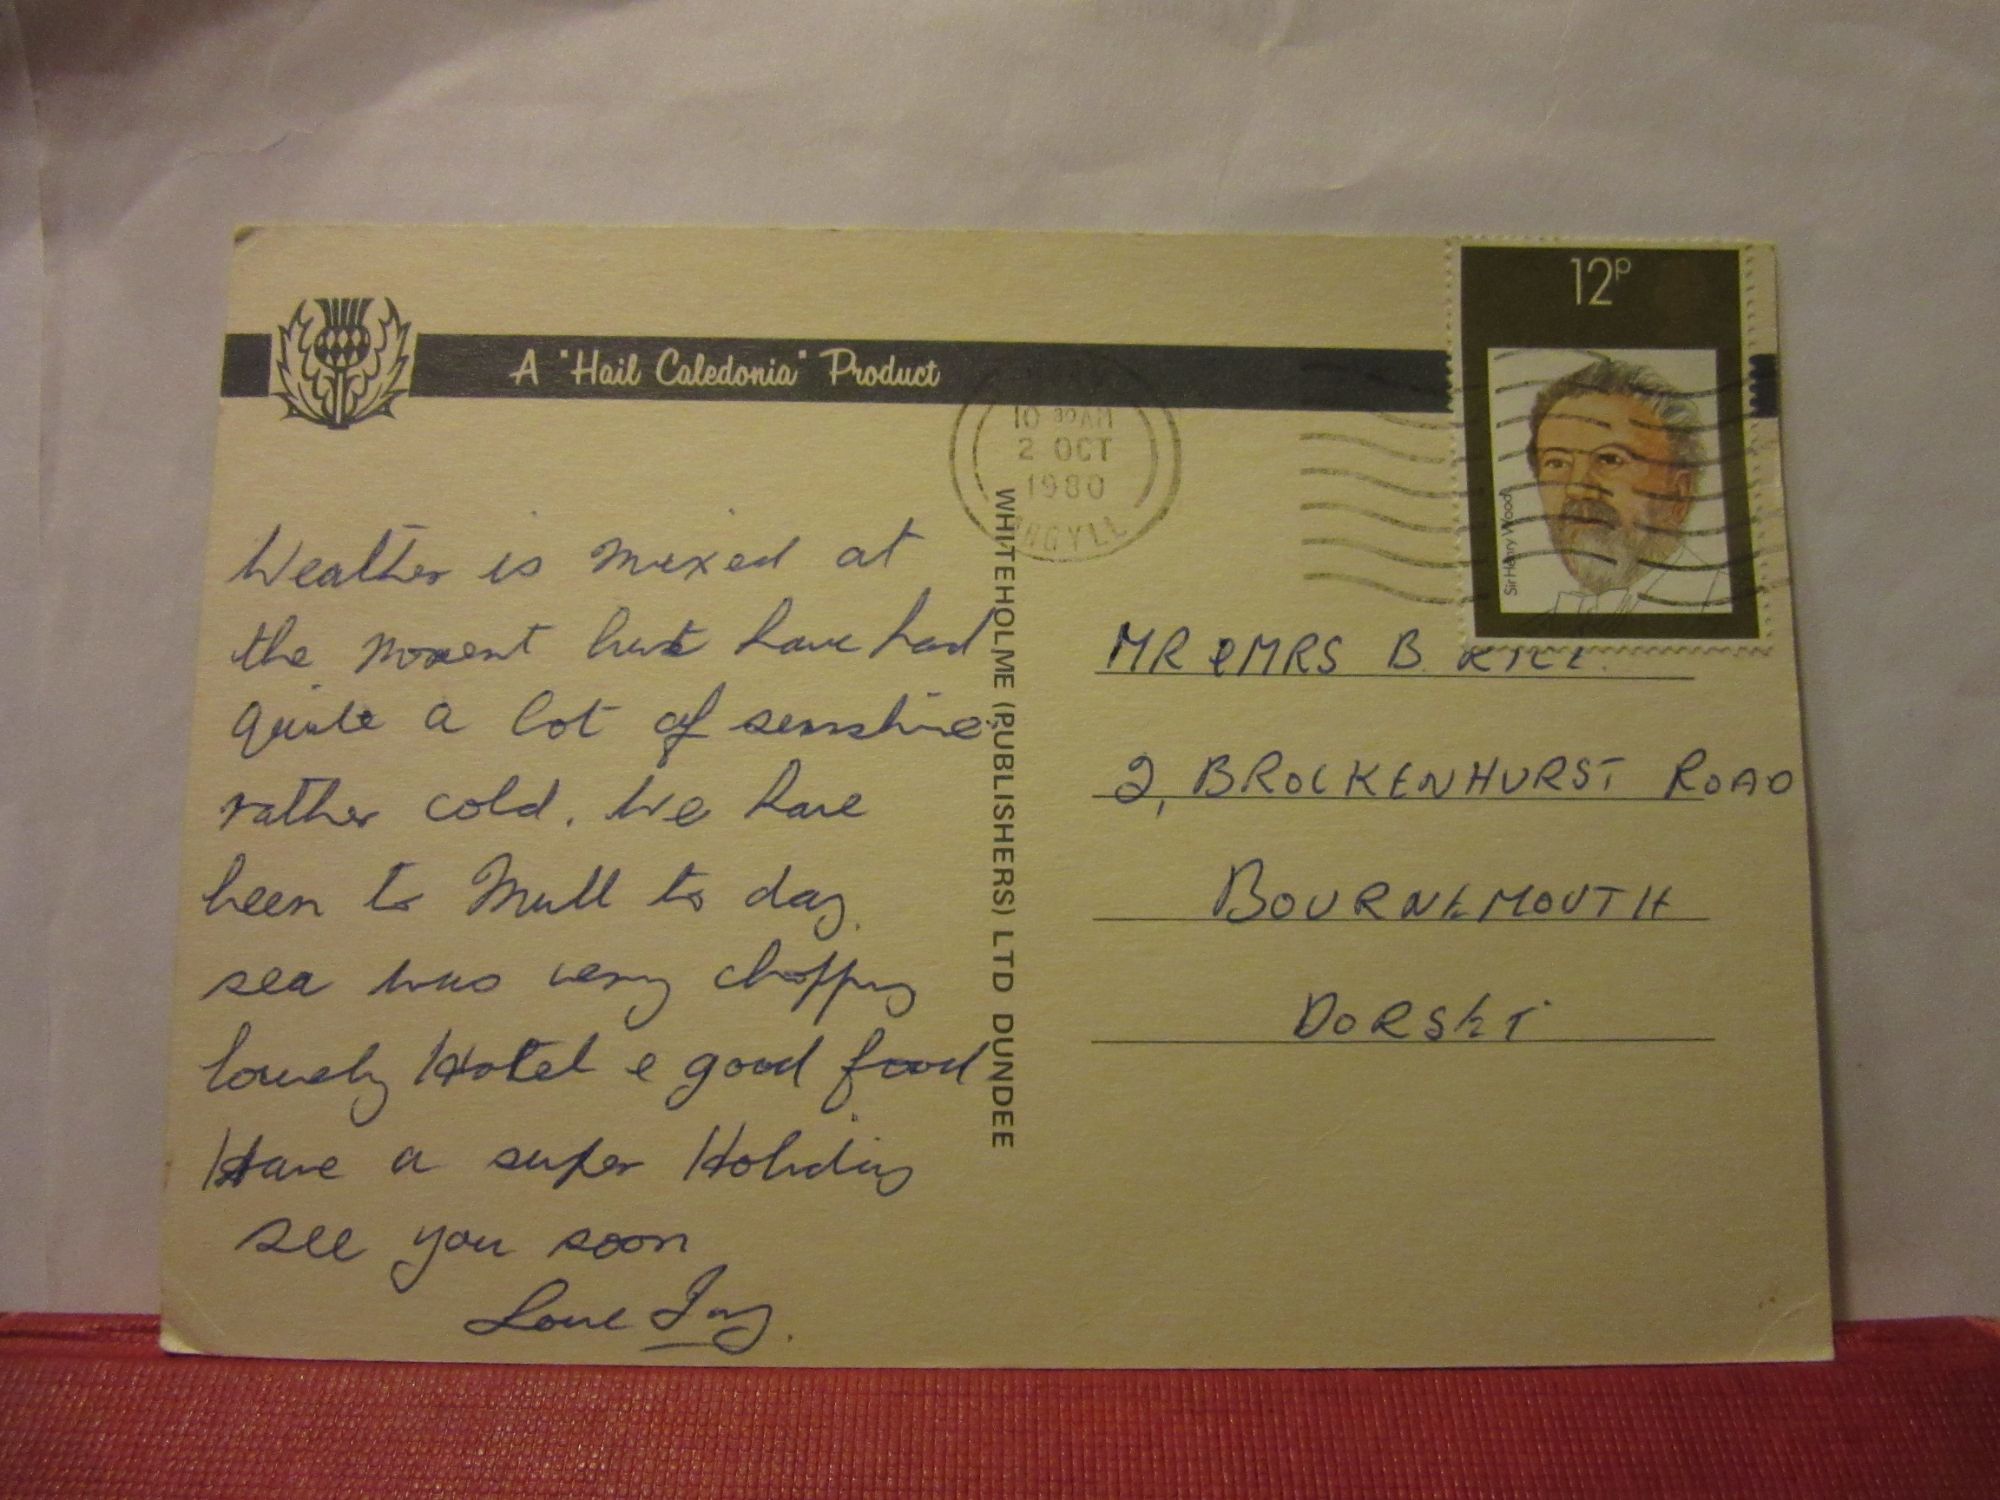 A "Hail Caledonia" Product
12P
Sir Henry Wood
10 30 AM
2 OCT
1980
ARGYLL
Weather is mixed at
the moment but have had
quite a lot of sunshine
rather cold. We have
been to Mull to day.
sea was very choppy
lovely Hotel & good food
Have a super Holiday
see you soon
Love
WHITEHOLME (PUBLISHERS) LTD DUNDEE
MR & MRS B.
2, BROCKENHURST ROAD
BOURNEMOUTH
DORSET